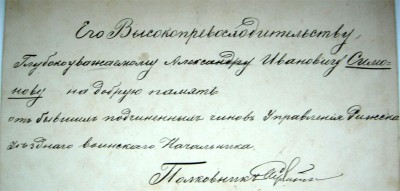 Его Высокопревосходительству,
Глубокоуважаемому Александру Ивановичу Симо-
нову на добрую память
отъ бывшихъ подчиненныхъ чиновъ Управленія
уѣзднаго воинскаго Начальника.
Полковникъ